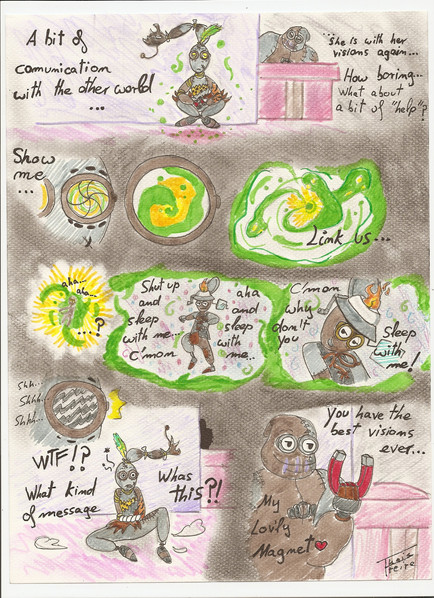 A bit of
comunication
with the other world
...
...She is with her
visions again...
How boring...
What about
a bit of "help"?
Show
me
...
Link us...
aha...
aha...
...?
Shut up
and
sleep
with me...
C'mon
aha
and
sleep
with
me...
C'mon
why
don't
you
Sleep
with
me!
Shh...
Shhh...
Shhh...
WTF!?
What kind
of message
Whas
this?!
You have the
best visions
ever...
My
Lovily
Magnet